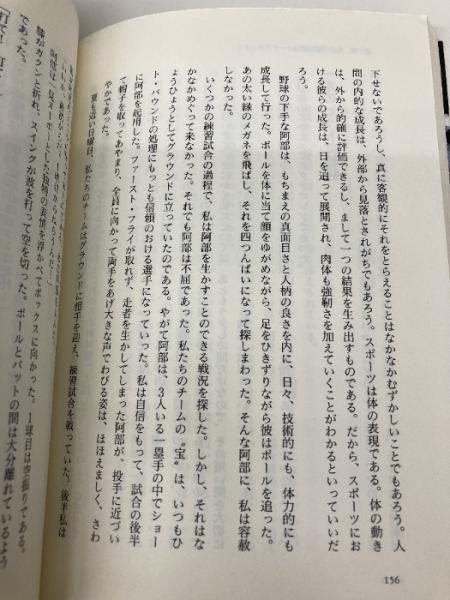 下せないであろうし、真に客観的にそれをとらえることはなかなかむずかしいことでもあろう。人
間の内的な成長は、外部から見落とされがちでもあろう。スポーツは体の表現である。体の動き
は、外から的確に評価できるし、まして一つの結果を生み出すものである。だから、スポーツにお
ける彼らの成長は、日を追って展開され、肉体も強靱さを加えていくことがわかるといっていいだ
ろう。
野球の下手な阿部は、もちまえの真面目さと人柄の良さを内に、日々、技術的にも、体力的にも
成長して行った。ボールを体に当て顔をゆがめながら、足をひきずりながら彼はボールを追った。
あの太い縁のメガネを飛ばし、それを四つんばいになって探しまわった。そんな阿部に、私は容赦
しなかった。
いくつかの練習試合の過程で、私は阿部を生かすことのできる戦況を探した。しかし、それはな
かなかめぐって来なかった。それでも阿部は不屈であった。私たちのチームの〝宝〟は、いつもひ
ょうひょうとしてグラウンドに立っていたのである。やがて阿部は、3人いる一塁手の中でショー
ト・バウンドの処理にもっとも信頼のおける選手になっていった。私は自信をもって、試合の後半
に阿部を起用した。ファースト・フライが取れず、走者を生かしてしまった阿部が、投手に近づい
て帽子を取ってあやまり、全員に向かって両手をあげ大きな声でわびる姿は、ほほえましく、さわ
やかであった。
夏も近い日曜日、私たちのチームはグラウンドに相手を迎え、練習試合を戦っていた。後半私は
阿部は、見えーボーとした独特の表情を浮かべてボックスに向かった。1球目は空振りである。
膝がカクンと折れ、スイングが波を打って空を切った。ボールとバットの間は大分離れているよう
であった。
156